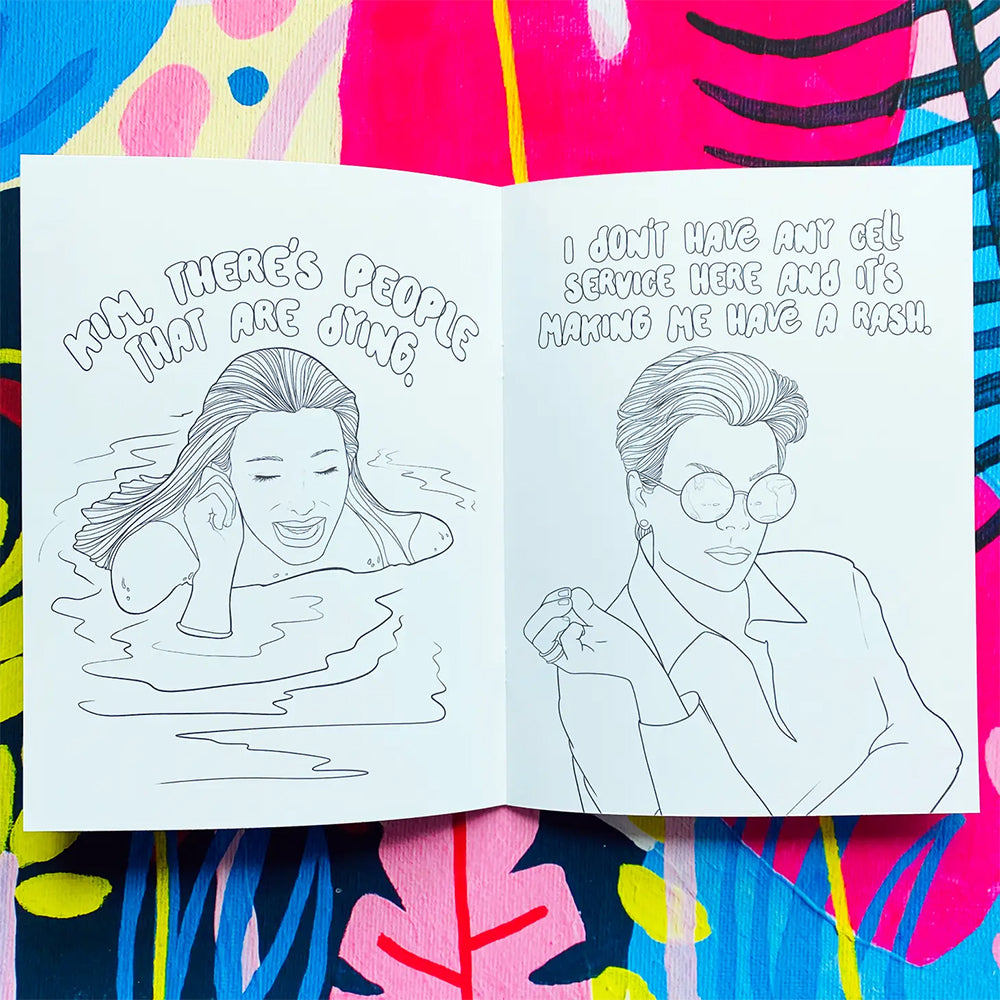 KIM, THERE'S PEOPLE
THAT ARE DYING.
I DON'T HAVE ANY CELL
SERVICE HERE AND IT'S
MAKING ME HAVE A RASH.